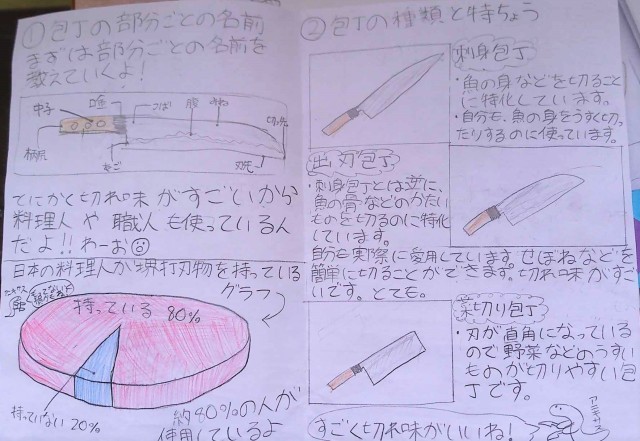 ①包丁の部分ごとの名前
まずは部分ごとの名前を
教えていくよ！
中子
つば
腹
みね
切っ先
柄尻
あご
刃先
とにかく切れ味がすごいから
料理人や職人も使っているん
だよ!!わーお
日本の料理人が堺打刃物を持っている
グラフ
持っている 80%
持っていない 20%
約80%の人が
使用しているよ
②包丁の種類と特ちょう
刺身包丁
・魚の身などを切ること
に特化しています。
・自分も、魚の身をうすく切っ
たりするのに使っています。
出刃包丁
・刺身包丁とは逆に、
魚の骨などのかたい
ものを切るのに特化
しています。
自分も実際に愛用しています。せぼねなどを
簡単に切ることができます。切れ味がすご
いです。とても。
菜切り包丁
・刃が直角になっている
ので野菜などのうすい
ものが切りやすい包
丁です。
すごく切れ味がいいね！